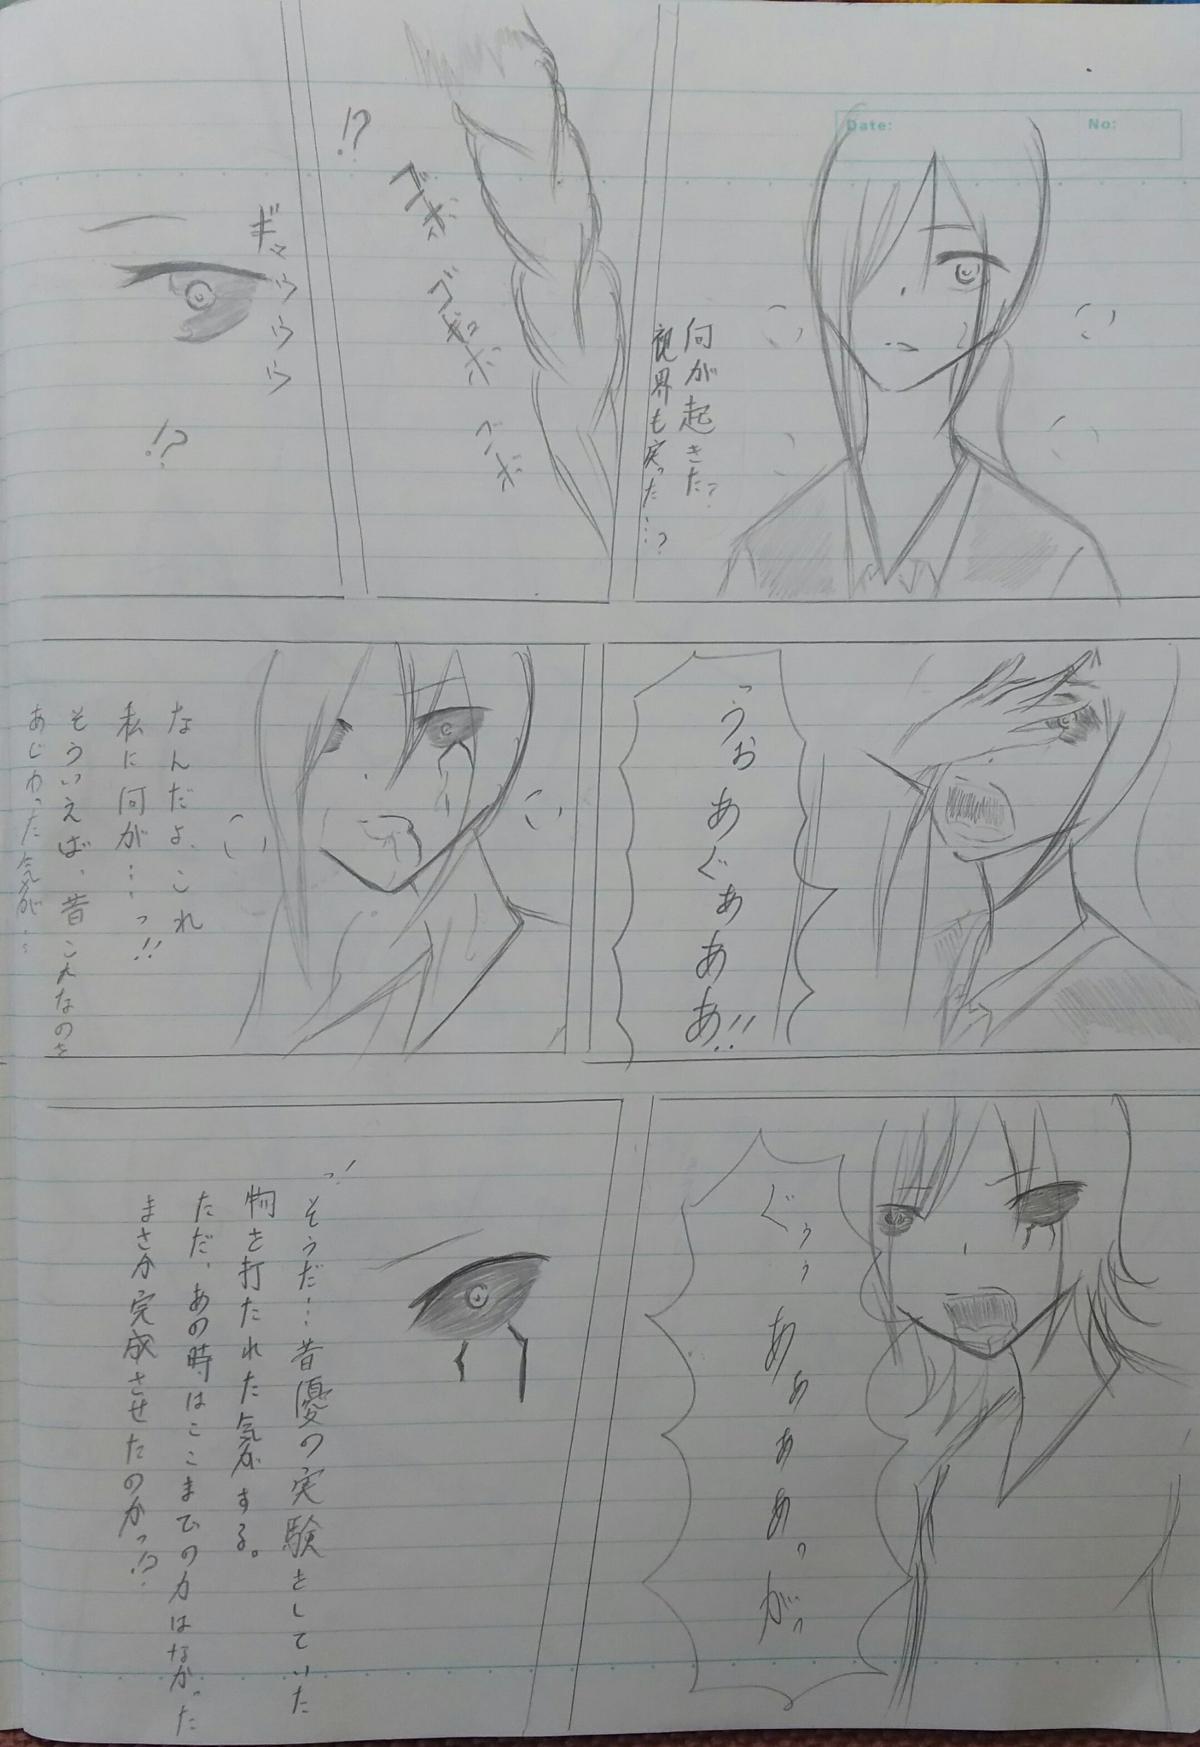 Date:
No:
何が起きた?
視界も変った…?
!?
ベギボ
ベギボボ
ベボ
ギュウウウウ
!?
っうお あぐぁああ!!
なんだよ、これ
私に何が…っ!!
そういえば、昔こんなのを
あじわった気が…
ぐぅぅ ああぁあっ がっ
っ!
そうだ…昔優の実験をしていた
物を打たれた気がする。
ただ、あの時はここまでの力はなかった
まさか完成させたのかっ!?